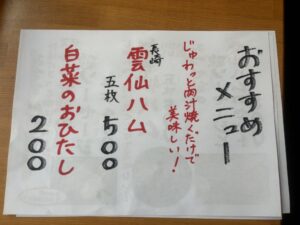 おすすめ
メニュー
じゅわッと肉汁焼くだけで
美味しい！
長崎
雲仙ハム
五枚 500
白菜のおひたし
200